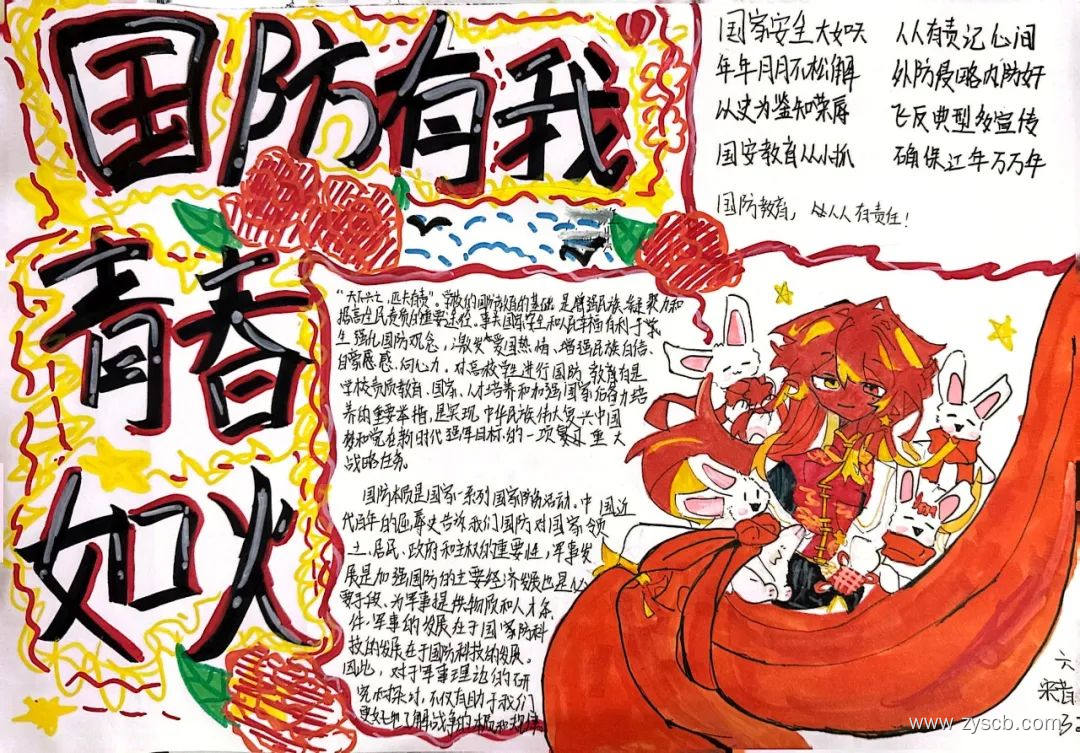 国防有我
青春
如火
国家安全大如天 人人有责记心间
年年月月不松解 外防侵略内防奸
以史为鉴知荣辱 飞反典型多宣传
国安教育从小抓 确保江年万万年
国防教育，人人有责任！
"天下兴亡，匹夫有责"。学校的国防教育的基础 是增强民族凝聚力和
提高全民素质的重要途径。事关国家安全和人民幸福有利于学
生 强化国防观念，激发爱国热情、增强民族自信、
自豪感、向心力。对高校学生进行国防 教育有是
学校素质教育、国家、人才培养和加强国家后备力培
养的重要举措，是实现 中华民族伟大复兴中国
梦和党在新时代强军目标的一项 重大
战略任务。
国防本质是国家一系列国家防务活动。中国近
代百年的屈辱史告诉我们国防对国家领
土、居民、政府和主权的重要性，军事发
展是加强国防的主要 经济发展也是必
要手段、为军事提供物质和人才条
件。军事的发展在于国家防科
技的发展在于国防科技的发展。
因此，对于军事理论的研
究和探讨，不仅有助于我们
更好地了解战争的
六
宋
www.zyscb.com